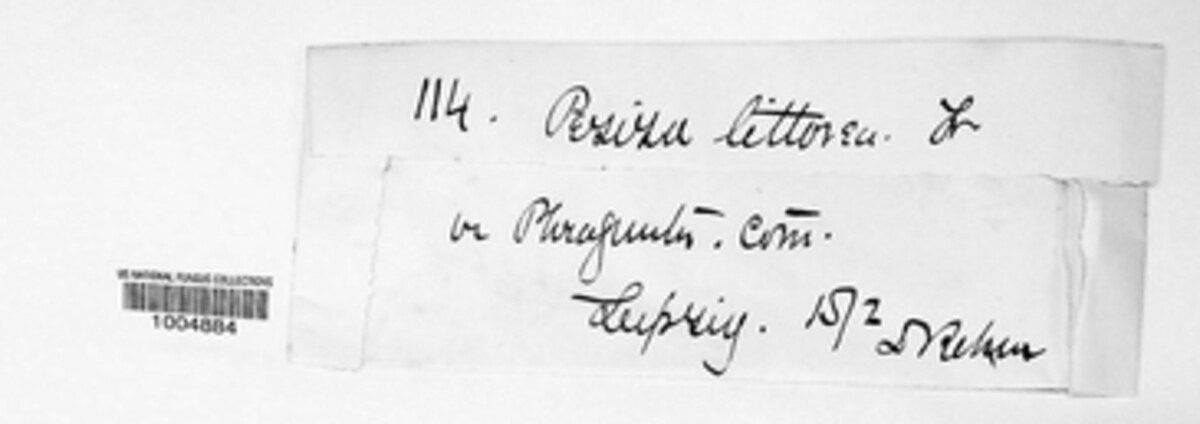 114. Peziza littorea. Fr
in Phragmitis. com.
Leipzig. 15/2 D Rehm
US NATIONAL FUNGUS COLLECTIONS
1004884